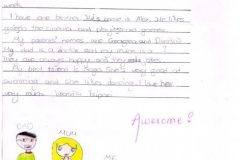 week.
I have one brother. His name is Alex. He likes
going to the cinema and playing games.
My parents' names are Georgina and Dimitris.
My dad is a doctor and my mum is a
They are always happy and they
My best friend is She's very good at
swimming and she likes dancing. I love her
very much.
Awesome!
DAD
MUM
ME